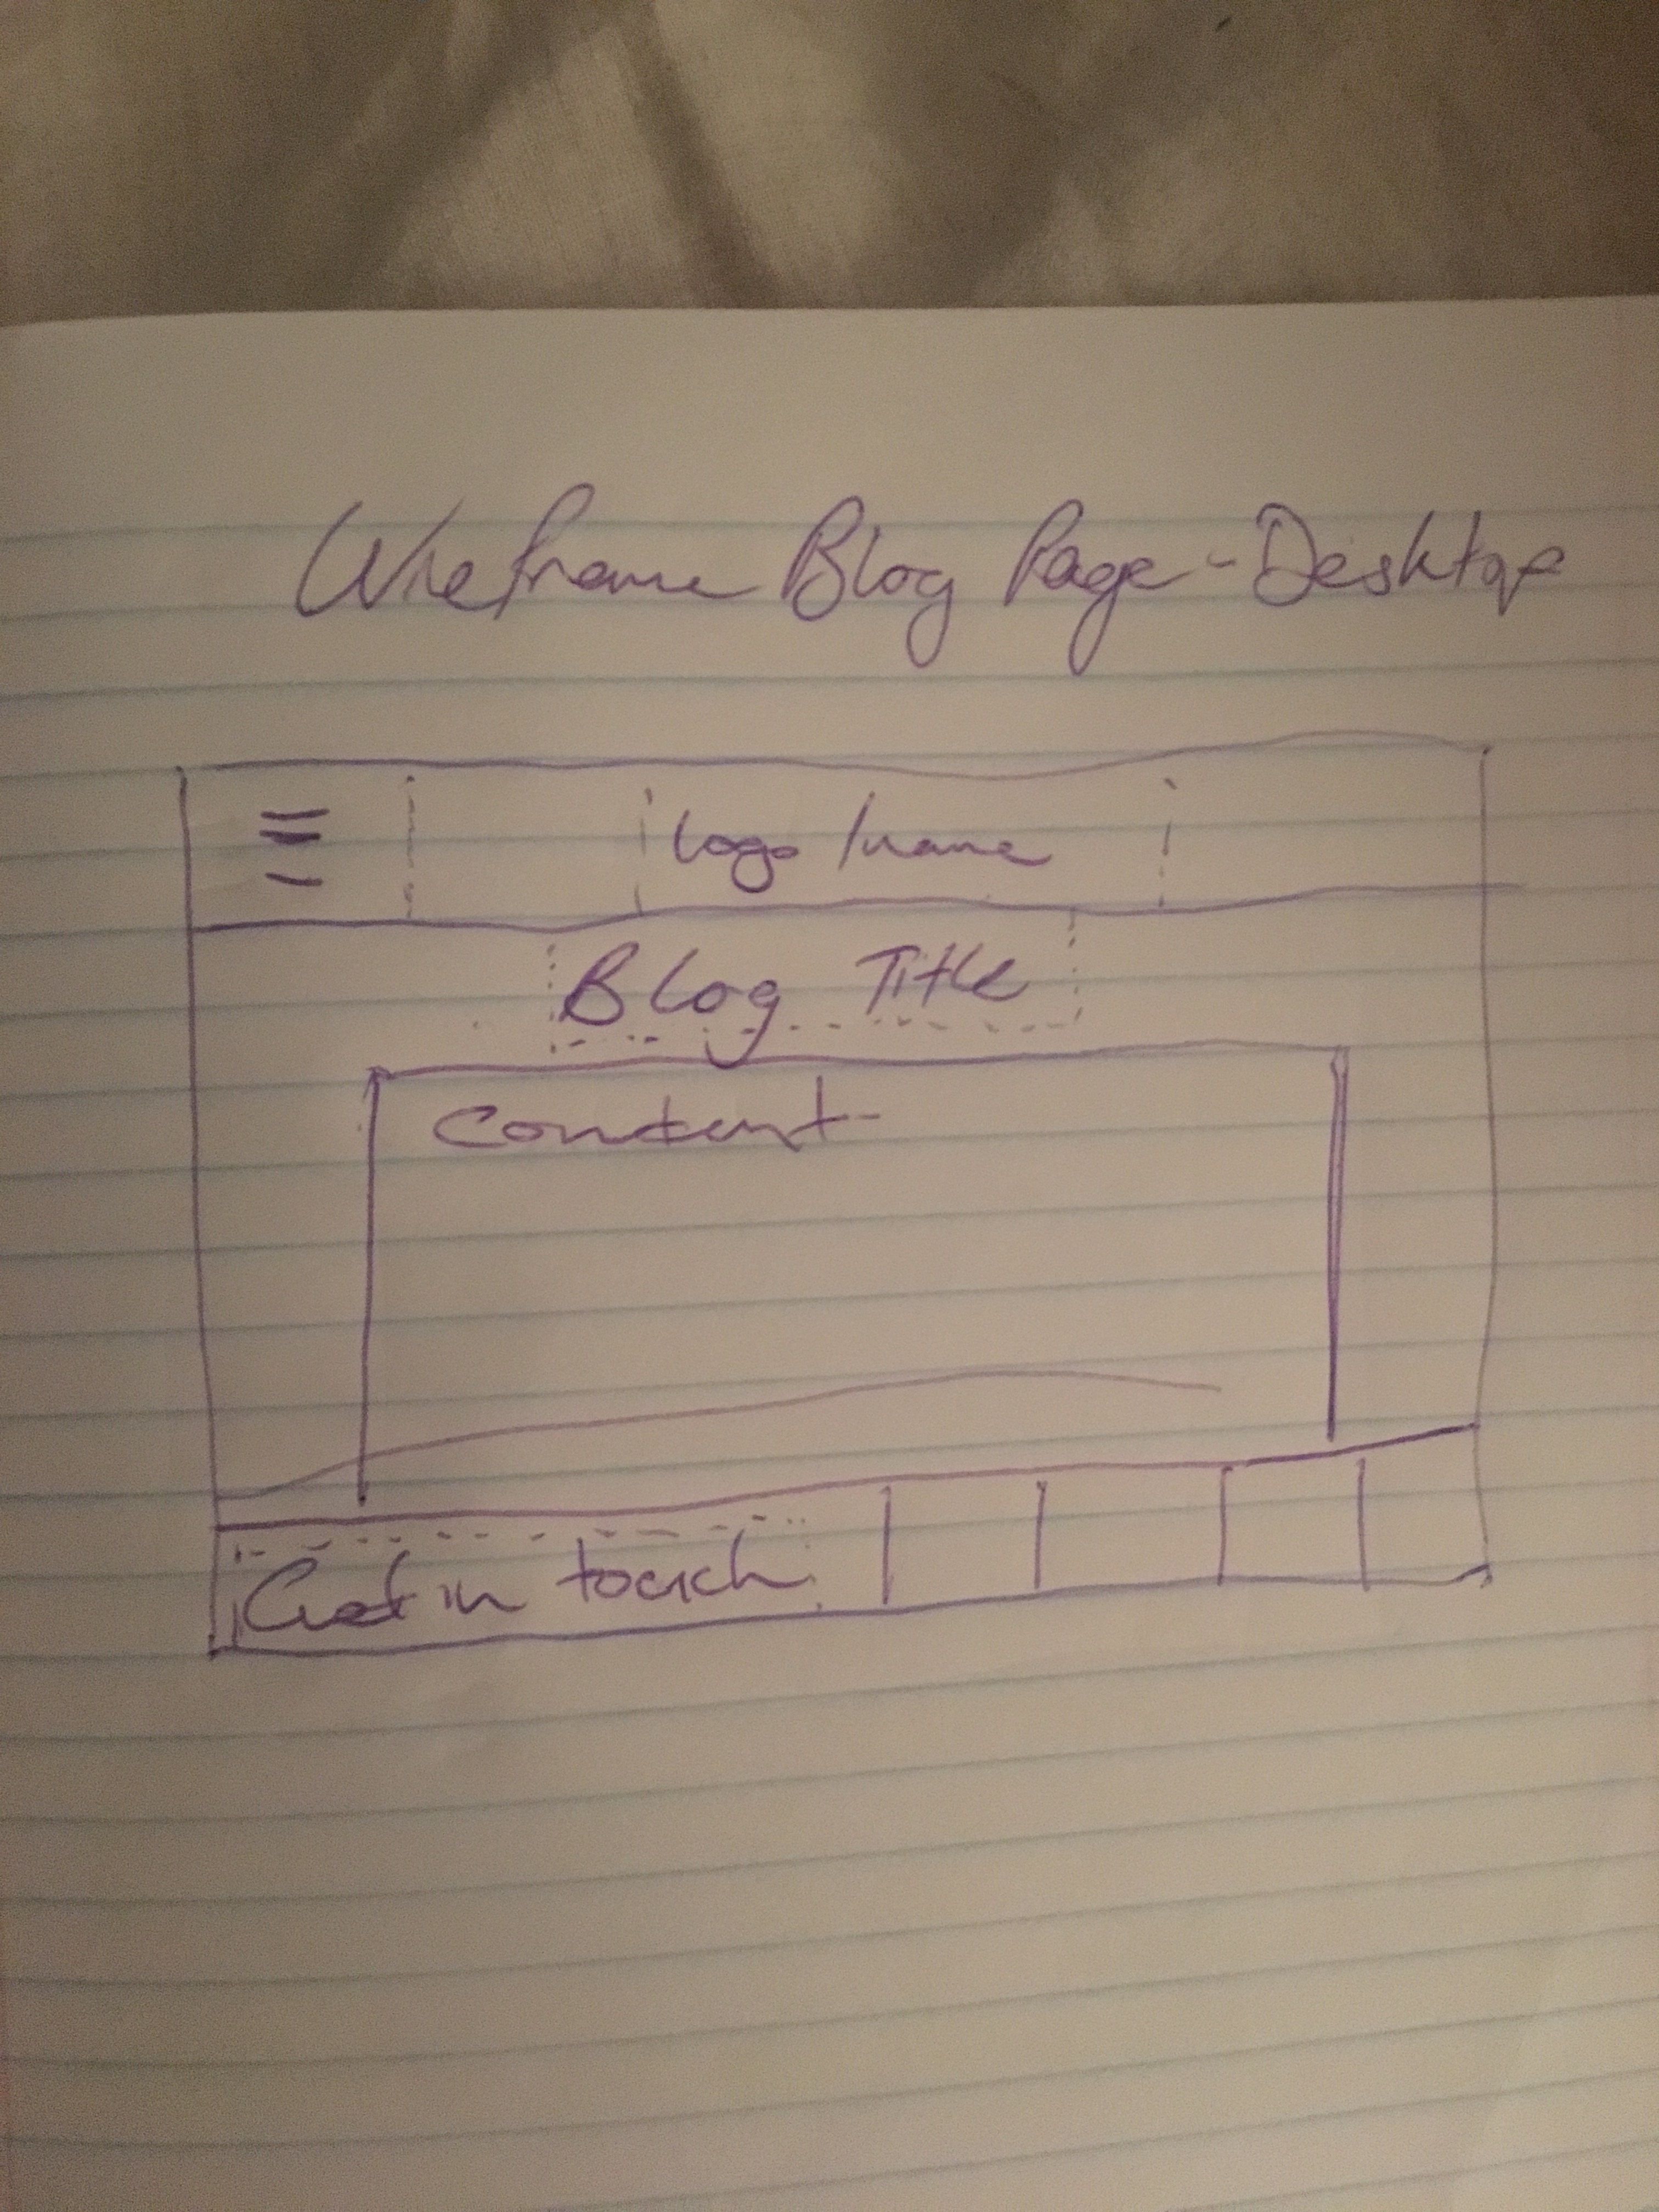 Wireframe Blog Page - Desktop
Logo / name
Blog Title
Content
Get in touch